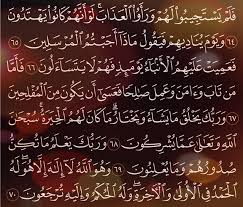 فَلَمْ يَسْتَجِيبُوا۟ لَهُمْ وَرَأَوُا۟ ٱلْعَذَابَ ۚ لَوْ أَنَّهُمْ كَانُوا۟ يَهْتَدُونَ
٦٤ وَيَوْمَ يُنَادِيهِمْ فَيَقُولُ مَاذَآ أَجَبْتُمُ ٱلْمُرْسَلِينَ ٦٥
فَعَمِيَتْ عَلَيْهِمُ ٱلْأَنۢبَآءُ يَوْمَئِذٍ فَهُمْ لَا يَتَسَآءَلُونَ ٦٦ فَأَمَّا
مَن تَابَ وَءَامَنَ وَعَمِلَ صَـٰلِحًا فَعَسَىٰٓ أَن يَكُونَ مِنَ ٱلْمُفْلِحِينَ
٦٧ وَرَبُّكَ يَخْلُقُ مَا يَشَآءُ وَيَخْتَارُ ۗ مَا كَانَ لَهُمُ ٱلْخِيَرَةُ ۚ سُبْحَـٰنَ
ٱللَّهِ وَتَعَـٰلَىٰ عَمَّا يُشْرِكُونَ ٦٨ وَرَبُّكَ يَعْلَمُ مَا تُكِنُّ
صُدُورُهُمْ وَمَا يُعْلِنُونَ ٦٩ وَهُوَ ٱللَّهُ لَآ إِلَـٰهَ إِلَّا هُوَ ۖ لَهُ
ٱلْحَمْدُ فِى ٱلْأُولَىٰ وَٱلْـَٔاخِرَةِ ۖ وَلَهُ ٱلْحُكْمُ وَإِلَيْهِ تُرْجَعُونَ ٧٠